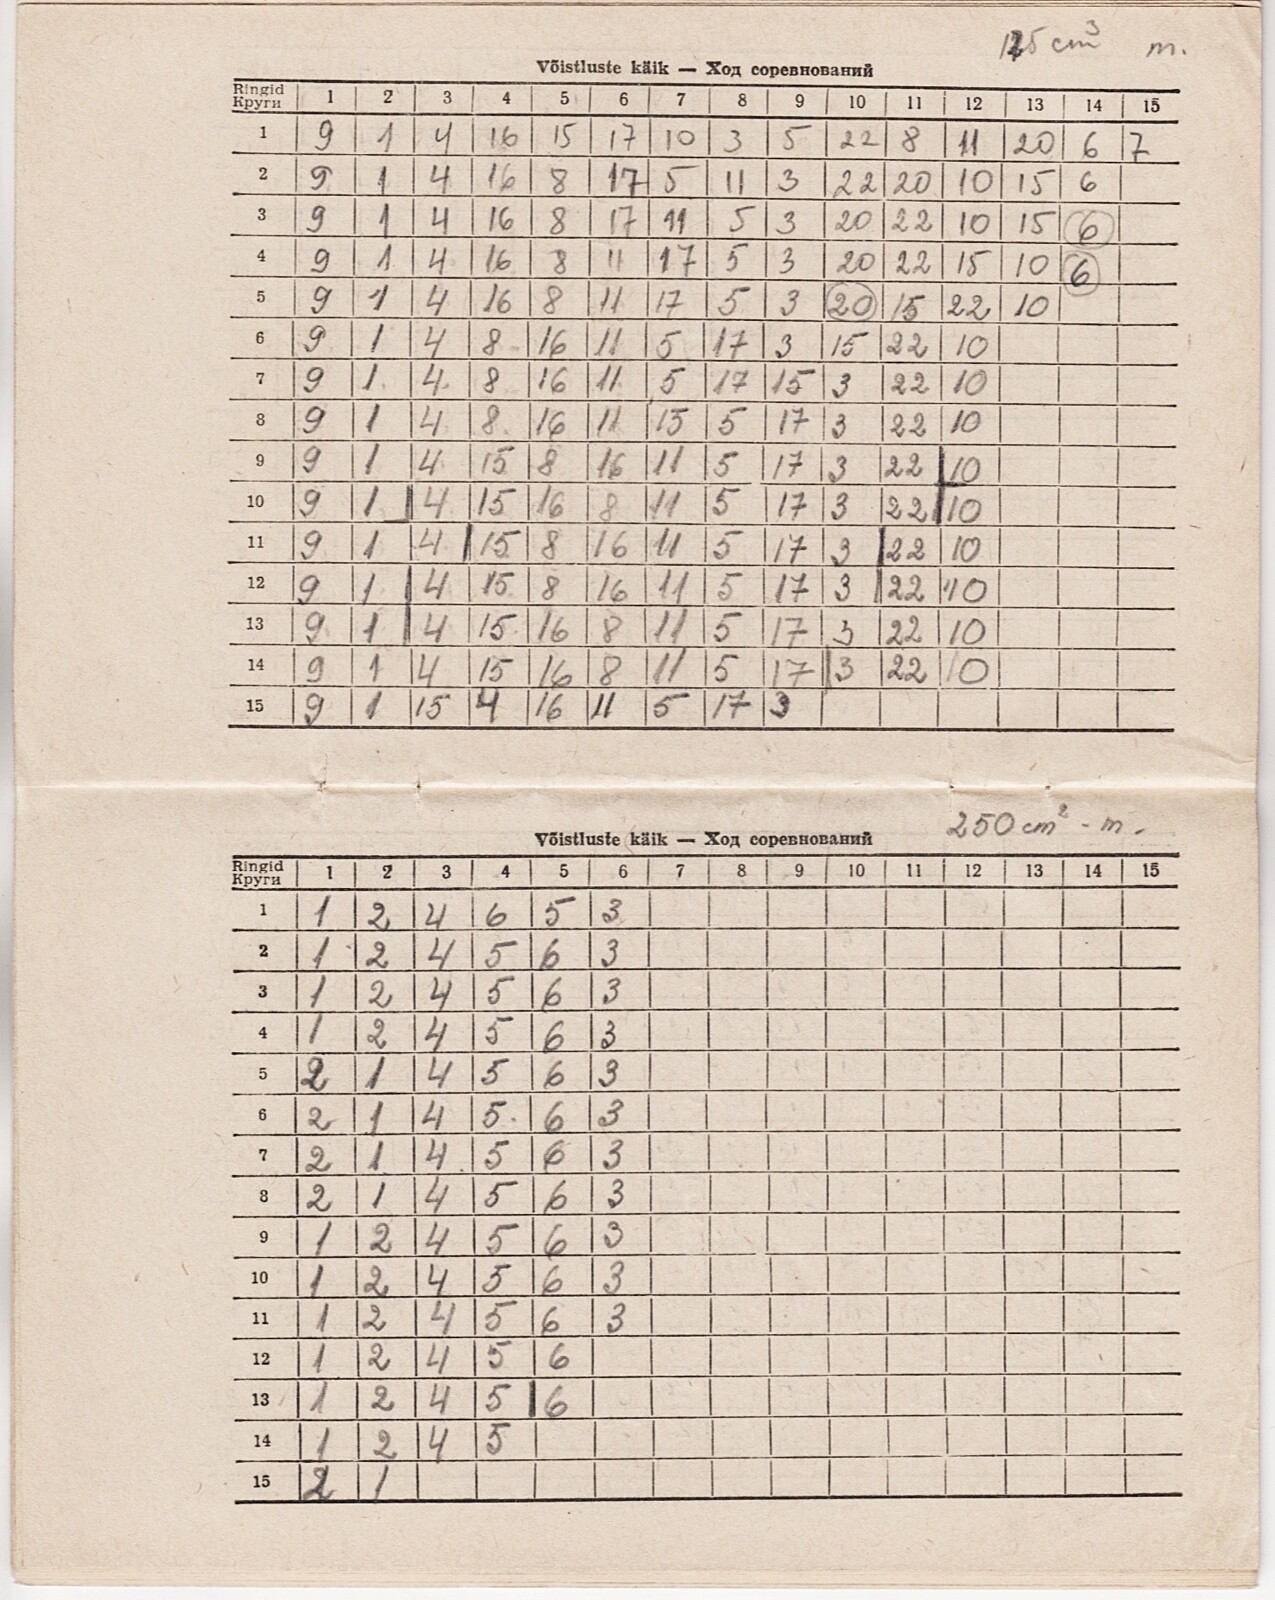 125 cm³ m.
Võistluste käik — Ход соревнований
Ringid Круги 1 2 3 4 5 6 7 8 9 10 11 12 13 14 15
1 9 1 4 16 15 17 10 3 5 22 8 11 20 6 7
2 9 1 4 16 8 17 5 11 3 22 20 10 15 6
3 9 1 4 16 8 17 11 5 3 20 22 10 15 6
4 9 1 4 16 8 11 17 5 3 20 22 15 10 6
5 9 1 4 16 8 11 17 5 3 20 15 22 10
6 9 1 4 8 16 11 5 17 3 15 22 10
7 9 1 4 8 16 11 5 17 15 3 22 10
8 9 1 4 8 16 11 15 5 17 3 22 10
9 9 1 4 15 8 16 11 5 17 3 22 10
10 9 1 4 15 16 8 11 5 17 3 22 10
11 9 1 4 15 8 16 11 5 17 3 22 10
12 9 1 4 15 8 16 11 5 17 3 22 10
13 9 1 4 15 16 8 11 5 17 3 22 10
14 9 1 4 15 16 8 11 5 17 3 22 10
15 9 1 15 4 16 11 5 17 3
250 cm² - m.
Võistluste käik — Ход соревнований
Ringid Круги 1 2 3 4 5 6 7 8 9 10 11 12 13 14 15
1 1 2 4 6 5 3
2 1 2 4 5 6 3
3 1 2 4 5 6 3
4 1 2 4 5 6 3
5 2 1 4 5 6 3
6 2 1 4 5 6 3
7 2 1 4 5 6 3
8 2 1 4 5 6 3
9 1 2 4 5 6 3
10 1 2 4 5 6 3
11 1 2 4 5 6 3
12 1 2 4 5 6
13 1 2 4 5 6
14 1 2 4 5
15 2 1